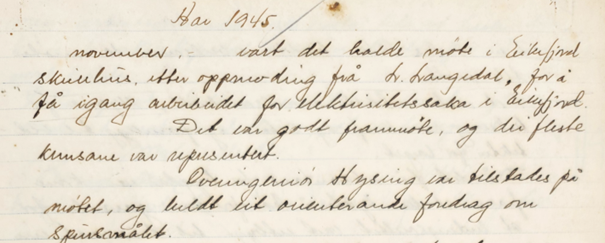 Har 1945.
november. – vart det halde møte i Eikefjord
skulehus. etter oppmoding frå hr. Langedal, for å
få igang arbeidet for elektrisitetssaka i Eikefjord.
Det var godt frammøte, og dei fleste
krinsane var representert.
Overingeniør Hysing var tilstades på
møtet, og heldt eit orienterande foredrag om
spursmålet.